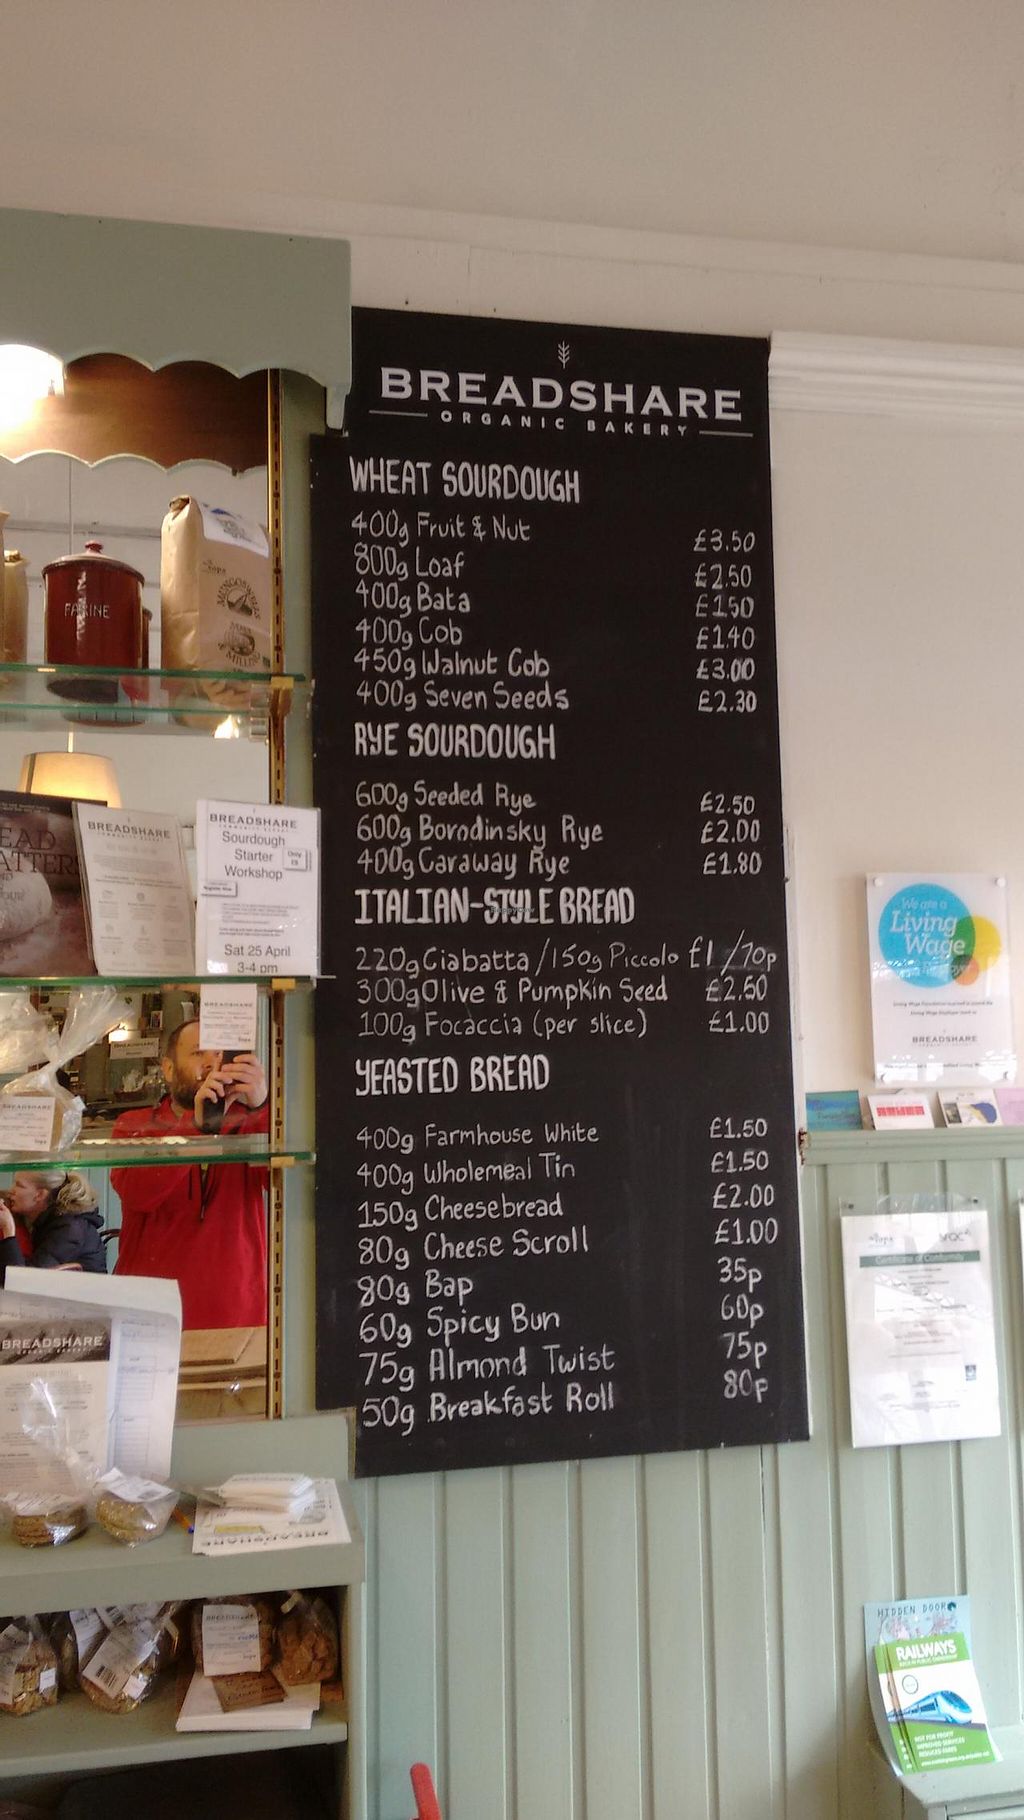 BREADSHARE
ORGANIC BAKERY
WHEAT SOURDOUGH
400g Fruit & Nut £3.50
800g Loaf £2.50
400g Bata £1.50
400g Cob £1.40
450g Walnut Cob £3.00
400g Seven Seeds £2.30
RYE SOURDOUGH
600g Seeded Rye £2.50
600g Borodinsky Rye £2.00
400g Caraway Rye £1.80
ITALIAN-STYLE BREAD
220g Ciabatta /150g Piccolo £1 /70p
300g Olive & Pumpkin Seed £2.50
100g Focaccia (per slice) £1.00
YEASTED BREAD
400g Farmhouse White £1.50
400g Wholemeal Tin £1.50
150g Cheesebread £2.00
80g Cheese Scroll £1.00
80g Bap 35p
60g Spicy Bun 60p
75g Almond Twist 75p
50g Breakfast Roll 80p
FARINE
BREADSHARE
BREADSHARE
Sourdough
Starter
Workshop
Only
Sat 25 April
3-4 pm
BREADSHARE
BREADSHARE
BREADSHARE
We are a
Living
Wage
BREADSHARE
Certificate of Conformity
HIDDEN DOOR
RAILWAYS
NOT FOR PROFIT
IMPROVED SERVICES
REDUCED FARES